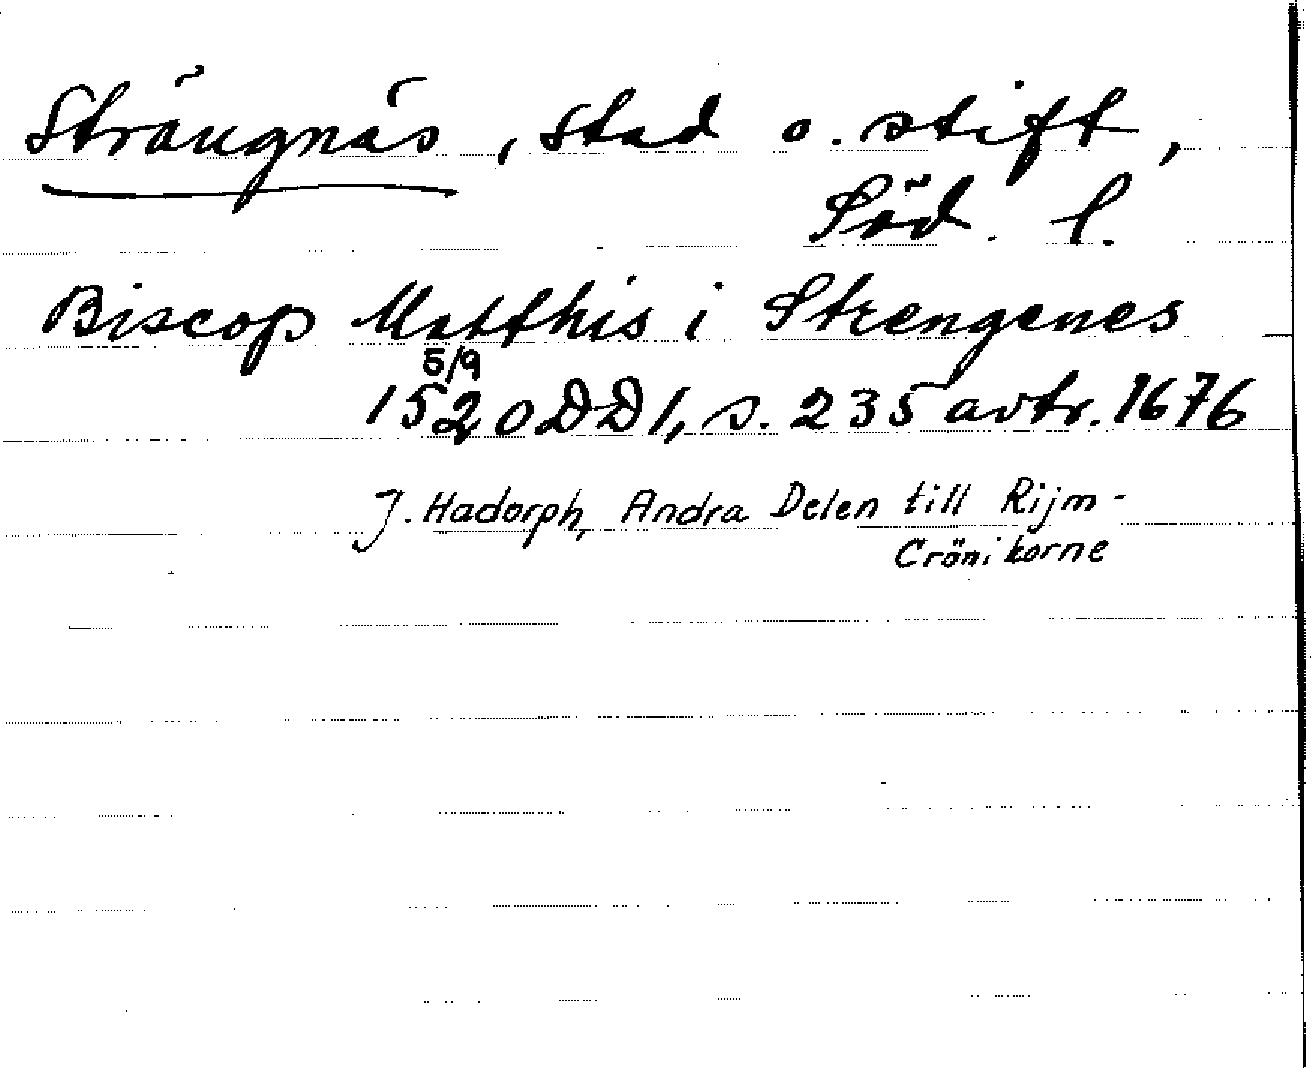 Strängnäs, stad o. stift,
Söd. l.
Biscop Matthis i Strengenes
5/9
1520 DD 1, s. 235 avtr. 1676
J. Hadorph, Andra Delen till Rijm-
Crönikorne